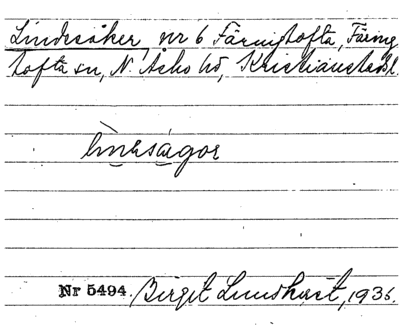 Lindesåker nr 6 Färingtofta, Färing
tofta sn, N. Åsbo hd, Kristianstads l.
Nr 5494. Birgit Lundkvist, 1936.